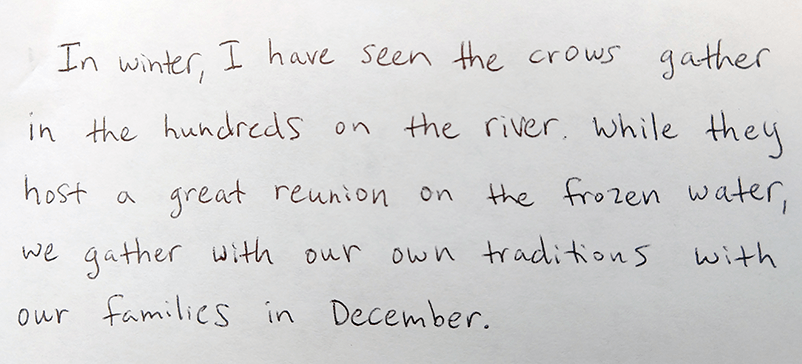 In winter, I have seen the crows gather
in the hundreds on the river. While they
host a great reunion on the frozen water,
we gather with our own traditions with
our families in December.